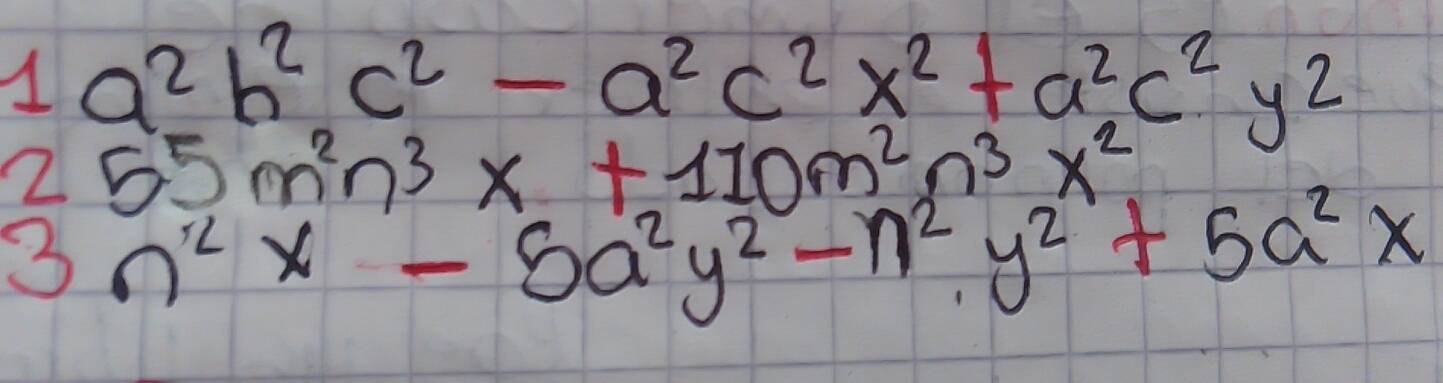 1 a² b² c² - a² c² x² + a² c² y²
2 55 m² n³ x + 110 m² n³ x²
3 n² x - 5a² y² - n² y² + 5a² x